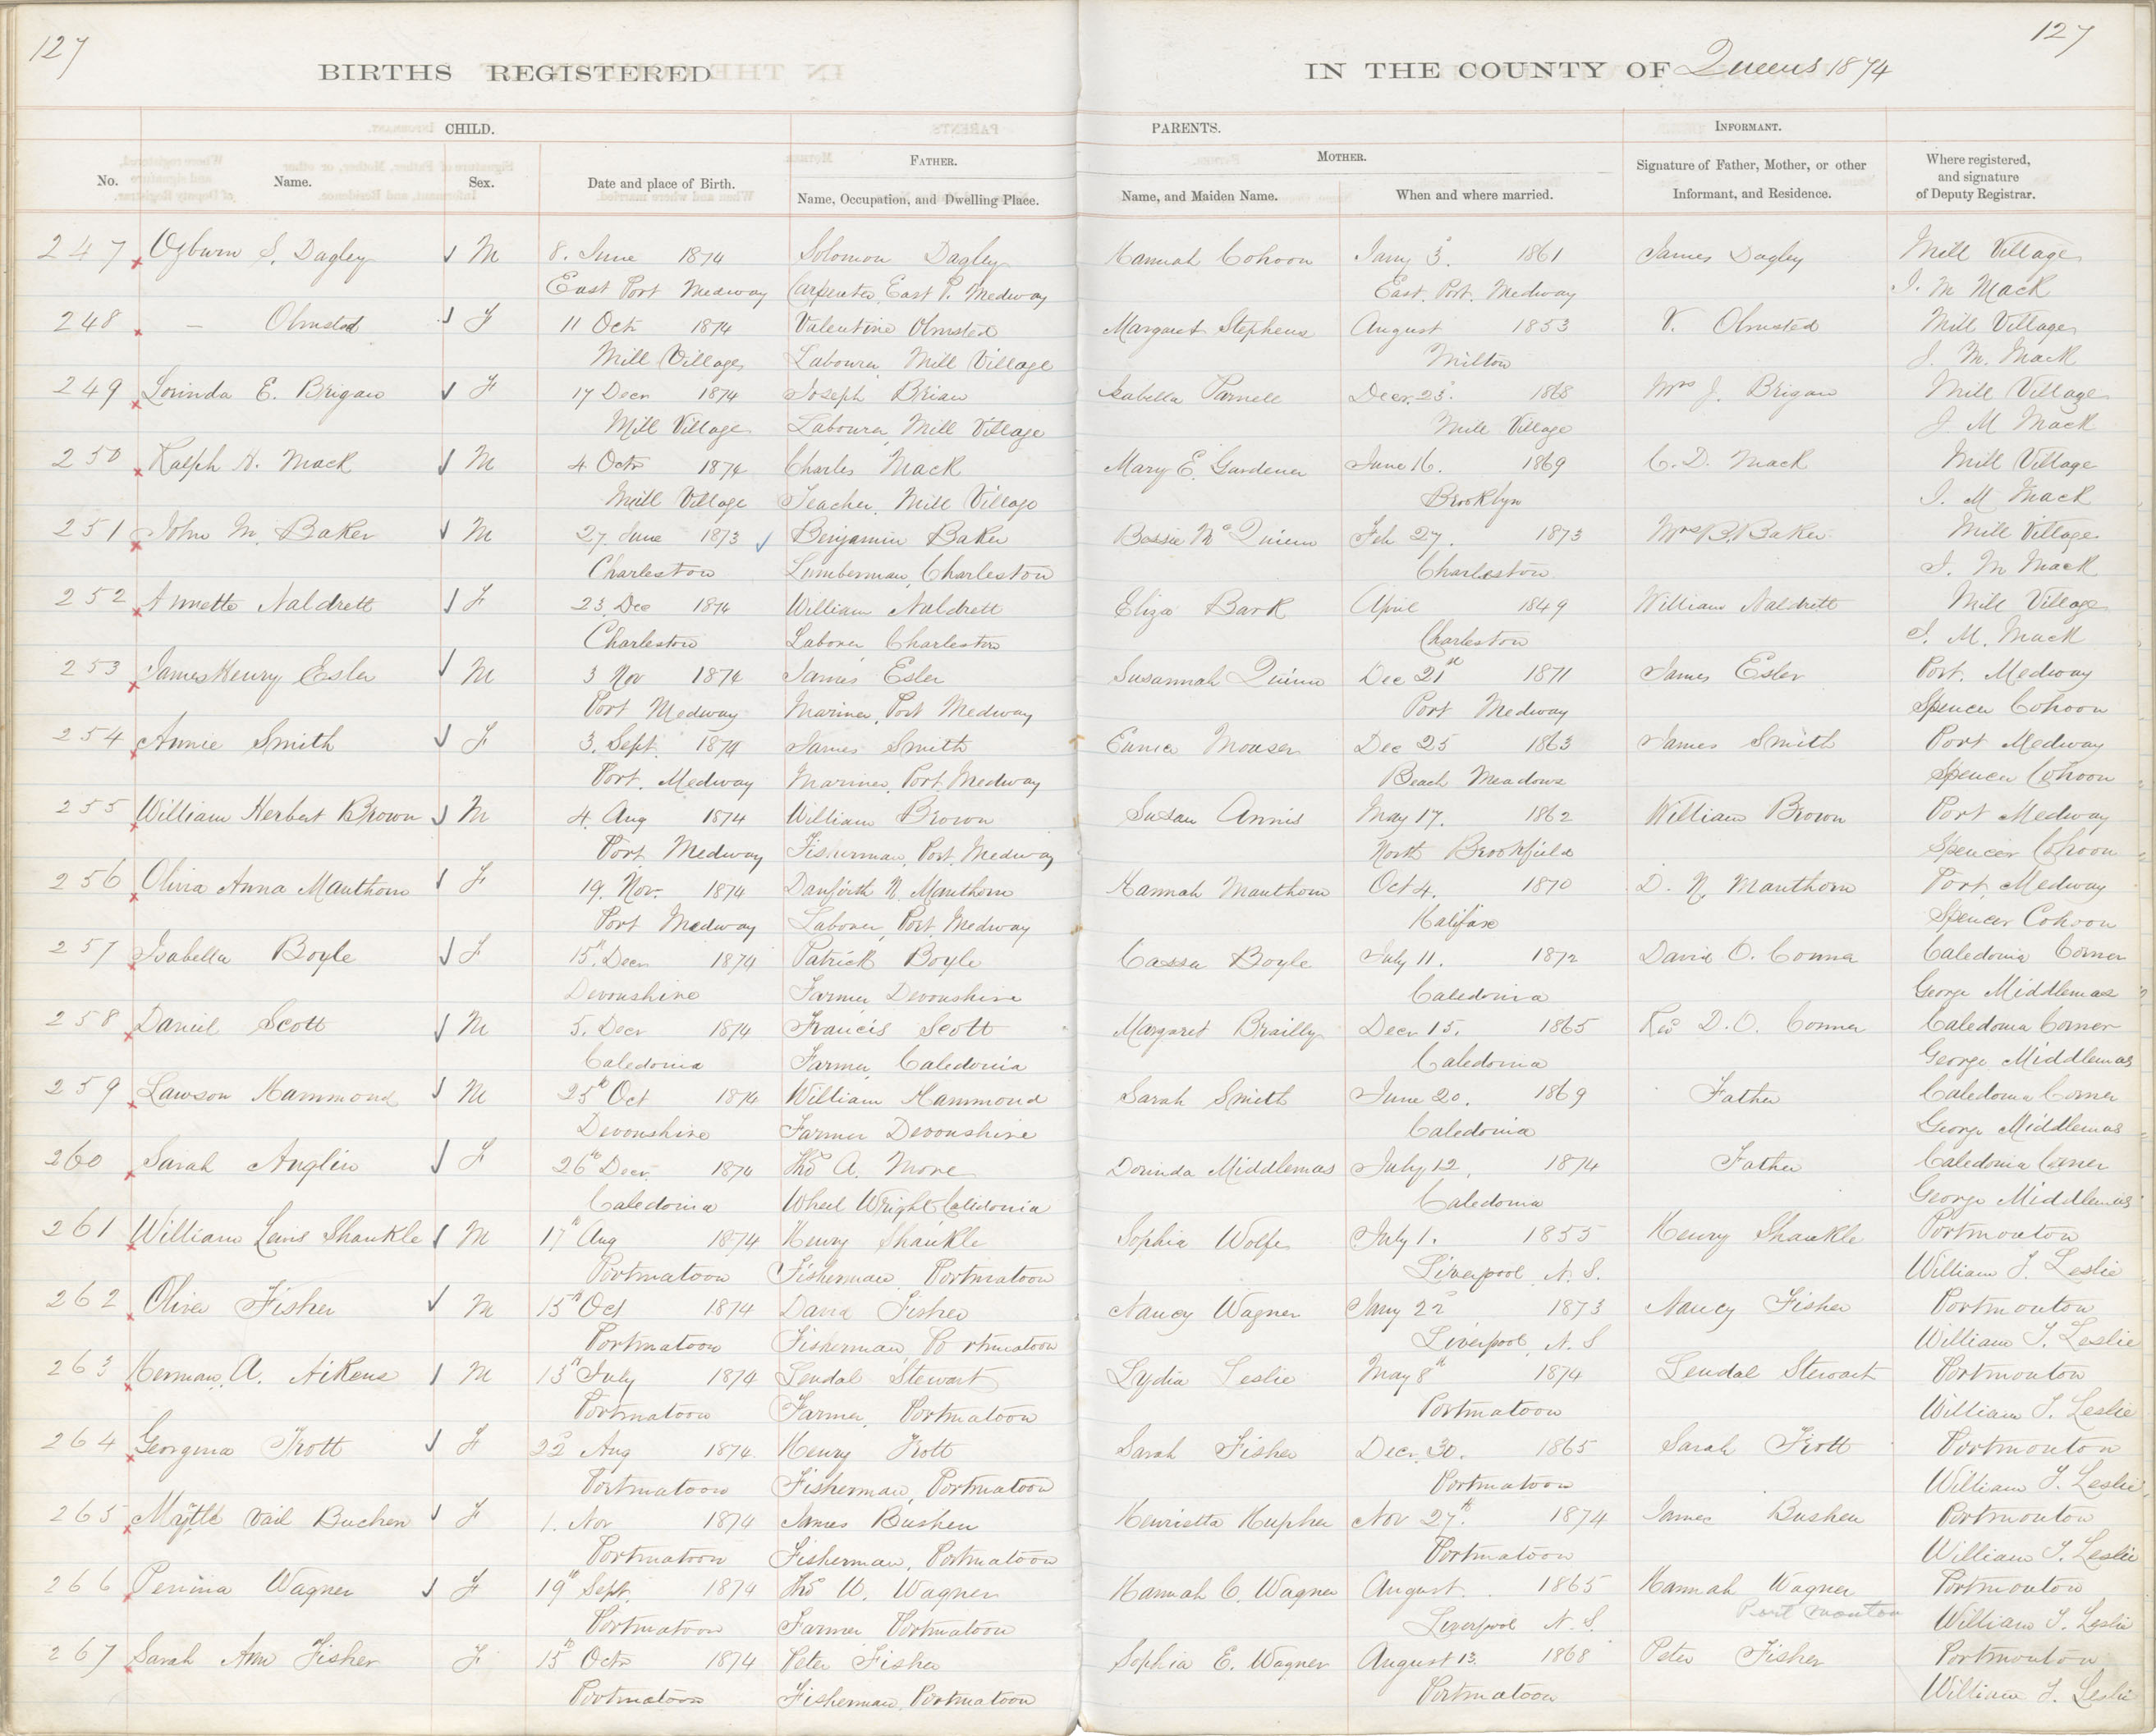 127
127
BIRTHS REGISTERED
IN THE COUNTY OF Queens 1874
CHILD.
PARENTS.
INFORMANT.
No.
Name.
Sex.
Date and place of Birth.
FATHER.
Name, Occupation, and Dwelling Place.
MOTHER.
Name, and Maiden Name.
When and where married.
Signature of Father, Mother, or other
Informant, and Residence.
Where registered,
and signature
of Deputy Registrar.
247 Ozburn S. Dagley M 8. June 1874 Solomon Dagley Hannah Cohoon Jany 3. 1861 James Dagley Mill Village
East Port Medway Carpenter, East P. Medway East. Port. Medway J. M Mack
248 — Olmsted F 11 Octr 1874 Valentine Olmsted Margaret Stephens August 1853 V. Olmsted Mill Village
Mill Village Labourer, Mill Village Milton J. M. Mack
249 Lorinda E. Brigan F 17 Decr 1874 Joseph Brian Isabella Parnell Decr. 25. 1868 Mrs J. Brigan Mill Village
Mill Village Labourer, Mill Village Mill Village J. M Mack
250 Ralph H. Mack M 4 Octr 1874 Charles Mack Mary E. Gardener June 16. 1869 C. D. Mack Mill Village
Mill Village Teacher, Mill Village Brooklyn J. M Mack
251 John M. Baker M 27 June 1873 Benjamin Baker Bessie Mc Quinn Feb 27. 1873 Mrs B. Baker Mill Village
Charleston Lumberman, Charleston Charleston J. M Mack
252 Annette Naldrett F 23. Dec 1874 William Naldrett Eliza Bark April 1849 William Naldrett Mill Village
Charleston Laborer Charleston Charleston J. M. Mack
253 James Henry Esler M 3 Nov 1874 James Esler Susannah Quinn Dec 21st 1871 James Esler Port. Medway
Port Medway Mariner, Port Medway Port Medway Spencer Cohoon
254 Annie Smith F 3. Sept. 1874 James Smith Eunice Mouser Dec 25 1863 James Smith Port Medway
Port. Medway Mariner, Port. Medway Beach Meadows Spencer Cohoon
255 William Herbert Brown M 4. Aug 1874 William Brown Susan Annis May 17. 1862 William Brown Port Medway
Port Medway Fisherman, Port. Medway North Brookfield Spencer Cohoon
256 Olivia Anna Manthorn F 19. Nov. 1874 Danforth N. Manthorn Hannah Manthorn Oct 4. 1870 D. N. Manthorn Port Medway
Port Medway Laborer, Port. Medway Halifax Spencer Cohoon
257 Isabella Boyle F 15th Decr 1874 Patrick Boyle Boyle July 11. 1872 David O. Conner Caledonia Corner
Devonshire Farmer Devonshire Caledonia George Middlemas
258 Daniel Scott M 5. Decr 1874 Francis Scott Margaret Brailly Decr 15. 1865 Rev D. O. Conner Caledonia Corner
Caledonia Farmer, Caledonia Caledonia George Middlemas
259 Lawson Hammond M 25th Oct 1874 William Hammond Sarah Smith June 20. 1869 Father Caledonia Corner
Devonshire Farmer Devonshire Caledonia George Middlemas
260 Sarah Anglin F 26th Decr. 1874 Thos A. More Dorinda Middlemas July 12, 1874 Father Caledonia Corner
Caledonia Wheel Wright Caledonia Caledonia George Middlemas
261 William Lewis Shankle M 17th Aug 1874 Henry Shankle Sophia Wolfe July 1. 1855 Henry Shankle Portmouton
Portmatoon Fisherman, Portmatoon Liverpool, N. S. William T. Leslie
262 Oliver Fisher M 15th Oct 1874 David Fisher Nancy Wagner Jany 22 1873 Nancy Fisher Portmouton
Portmatoon Fisherman, Portmatoon Liverpool, N. S William T. Leslie
263 Herman, A. Aikens M 13th July 1874 Lendal Stewart Lydia Leslie May 8th 1874 Lendal Stewart Portmouton
Portmatoon Farmer, Portmatoon Portmatoon William T. Leslie
264 Georgina Trott F 22 Aug 1874 Henry Trott Sarah Fisher Decr. 30. 1865 Sarah Trott Portmouton
Portmatoon Fisherman, Portmatoon Portmatoon William T. Leslie
265 Mytle Vail Buchen F 1. Nov 1874 James Bushen Henrietta Hupher Nov 27th. 1874 James Bushen Portmouton
Portmatoon Fisherman, Portmatoon Portmatoon William T. Leslie
266 Penina Wagner F 19th Sept. 1874 Thos W. Wagner Hannah C. Wagner August 1865 Hannah Wagner Portmouton
Portmatoon Farmer Portmatoon Liverpool N. S. Port Mouton William T. Leslie
267 Sarah Ann Fisher F 15th Octr 1874 Peter Fisher Sophia E. Wagner August 13. 1868 Peter Fisher Portmouton
Portmatoon Fisherman, Portmatoon Portmatoon William T. Leslie